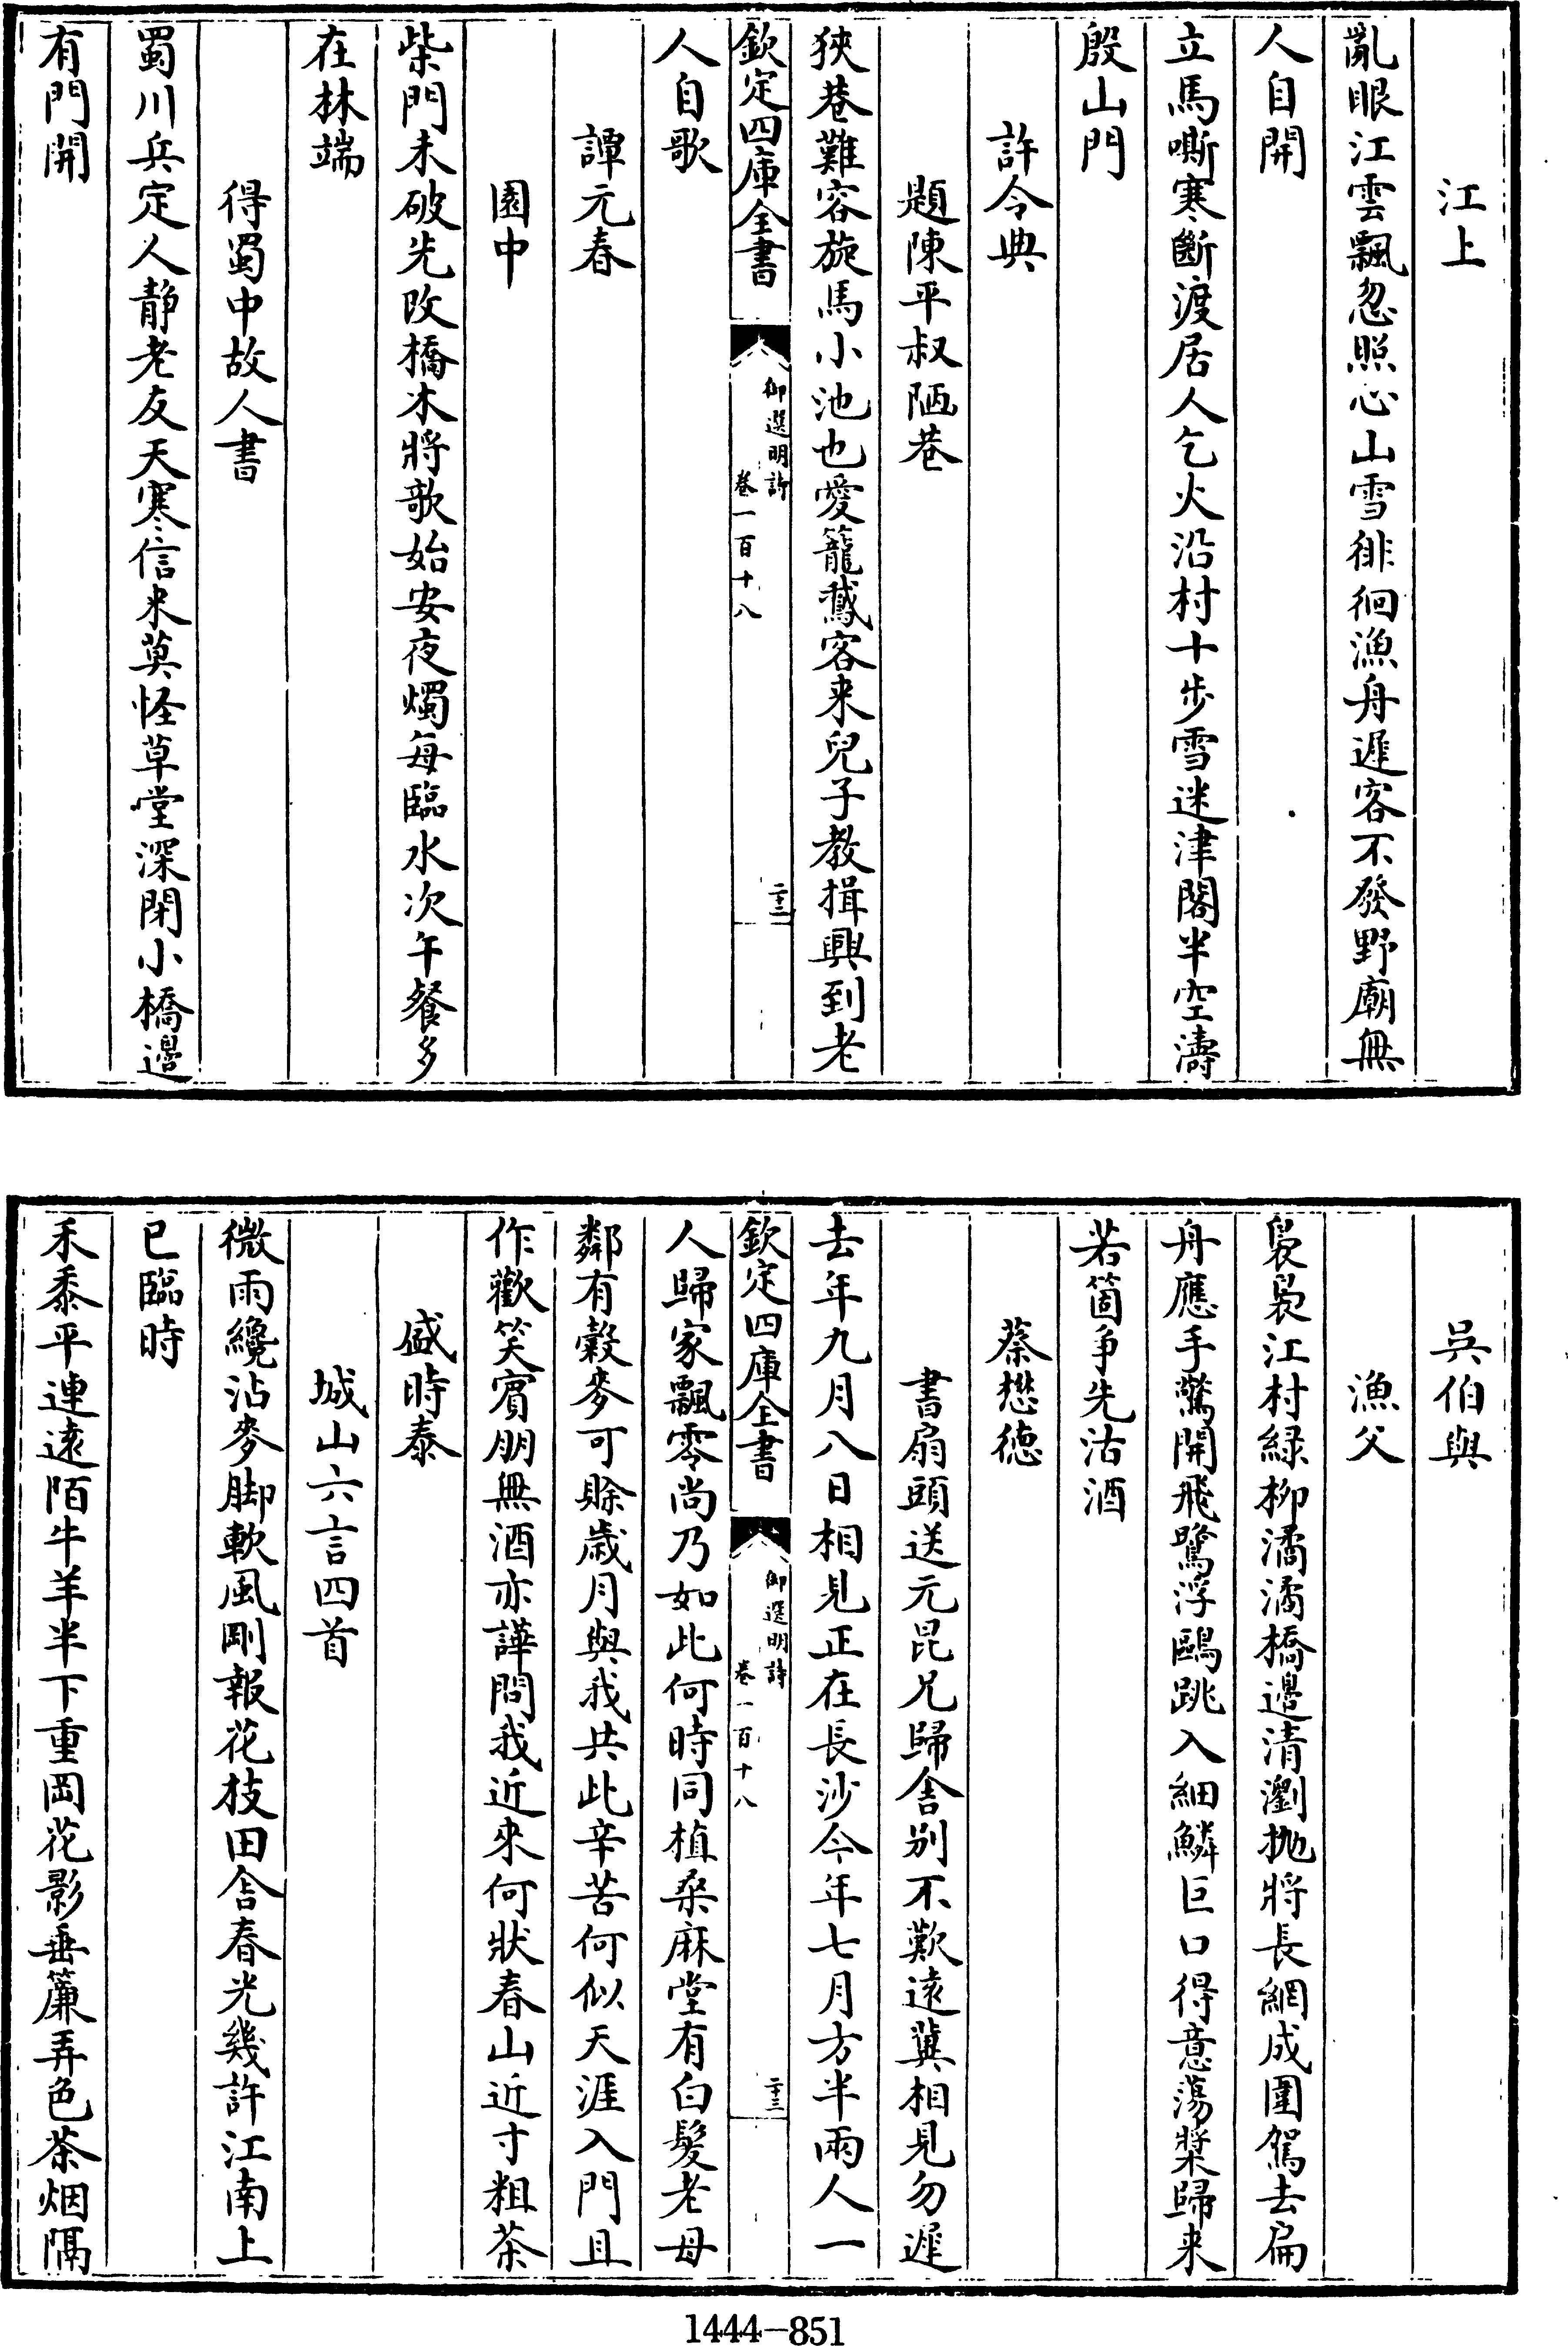 江上
亂眼江雲飄忽照心山雪徘徊漁舟遲客不發野廟無
人自開
立馬嘶寒斷渡居人乞火沿村十步雪迷津閣半空濤
殷山門
許令典
題陳平叔陋巷
狹巷難容旋馬小池也愛籠鵞客来兒子教揖興到老
欽定四庫全書
御選明詩
卷一百十八
二十三
人自歌
譚元春
園中
柴門未破先改橋木將歌始安夜燭每臨水次午餐多
在林端
得蜀中故人書
蜀川兵定人靜老友天寒信来莫怪草堂深閉小橋邊
有門開
吳伯與
漁父
裊裊江村緑柳潏潏橋邊清瀏抛將長網成圍駕去扁
舟應手驚開飛鷺浮鷗跳入細鱗巨口得意蕩槳歸来
若箇争先沽酒
蔡懋德
書扇頭送元昆兄歸舍别不歎遠冀相見勿遲
去年九月八日相見正在長沙今年七月方半兩人一
欽定四庫全書
御選明詩
卷一百十八
二十三
人歸家飄零尚乃如此何時同植桑麻堂有白髮老母
鄰有穀麥可賖歳月與我共此辛苦何似天涯入門且
作歡笑賓朋無酒亦譁問我近來何狀春山近寸粗茶
盛時泰
城山六言四首
微雨纔沾麥脚軟風剛報花枝田舍春光幾許江南上
已臨時
禾黍平連遠陌牛羊半下重岡花影垂簾弄色茶烟隔
1444-851